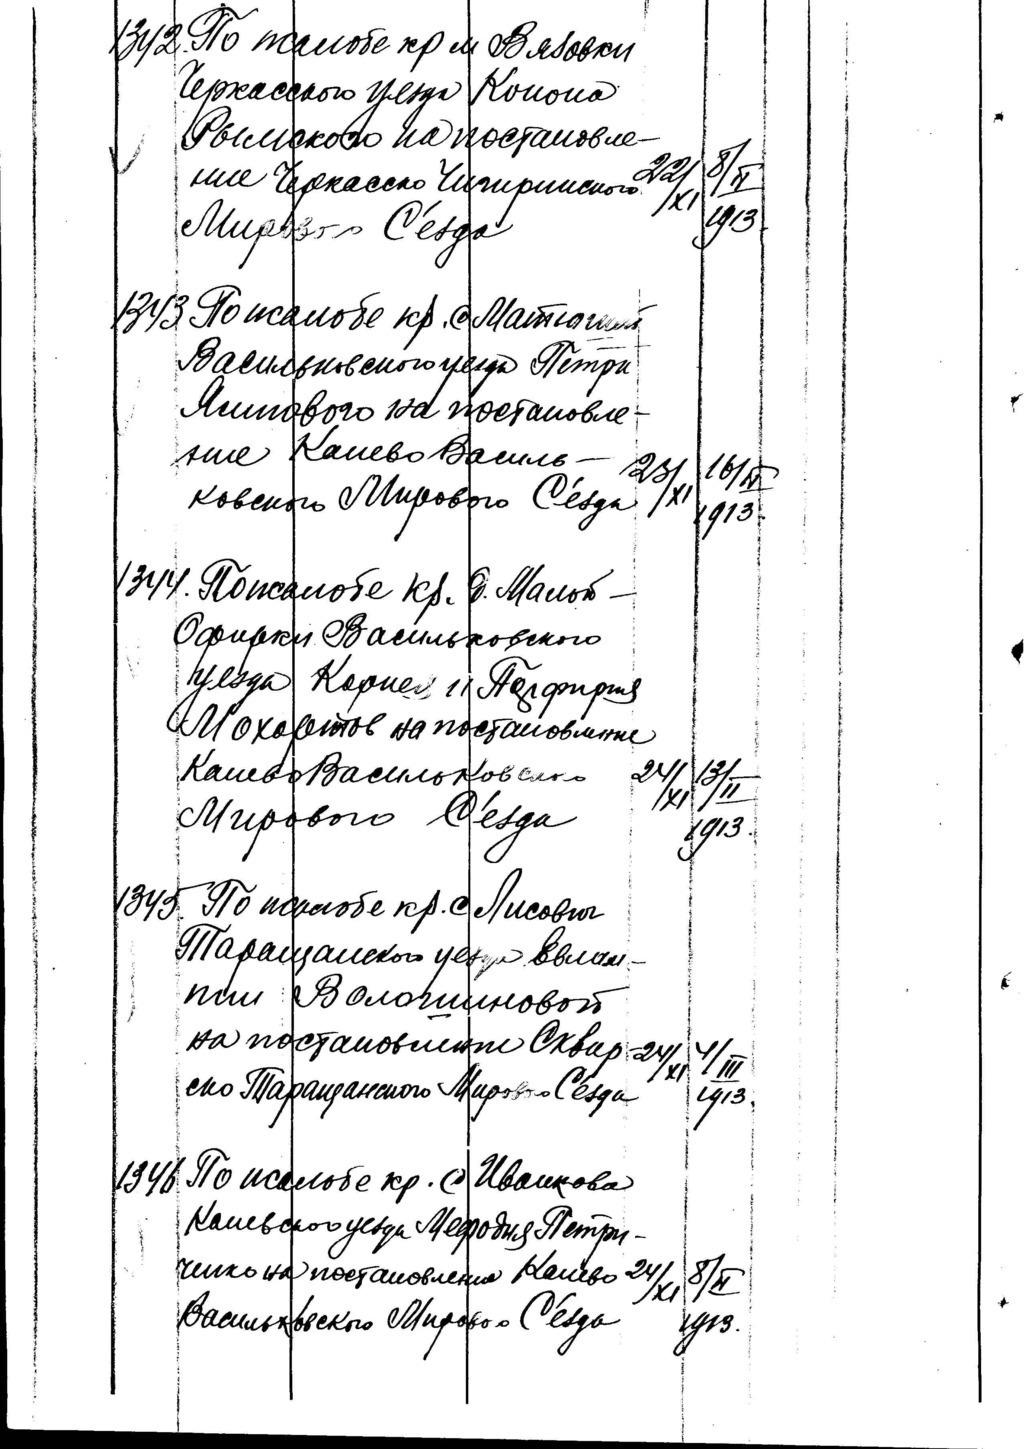 1342. По жалобе кр м Вязовки
Черкасского уезда Конона
Рымского на постановле-
ние Черкасско Чигиринского 22/XI 8/II
Мирового С'езда 1913
1343 По жалобе кр. с
Васильковского уезда Петра
Осипового на постановле-
ние Канево Василь-
ковского Мирового С'езда 23/XI 16/II
1913.
1344. По жалобе кр. д. Малой
Офирки Васильковского
уезда Корнея и Парфирия
Мохортов на постановление
Канево Васильковского 24/XI 13/II
Мирового С'езда 1913.
1345. По жалобе кр. с Лисович
Таращанского уезда Евлам-
пии Волошиновой
на постановление Сквир- 24/XI 4/III
ско Таращанского Мирового С'езда 1913.
1346 По жалобе кр. с Иванкова
Каневского уезда Мефодия Петри-
ченко на постановления Канево 24/XI 8/II
Васильковского Мирового С'езда 1913.